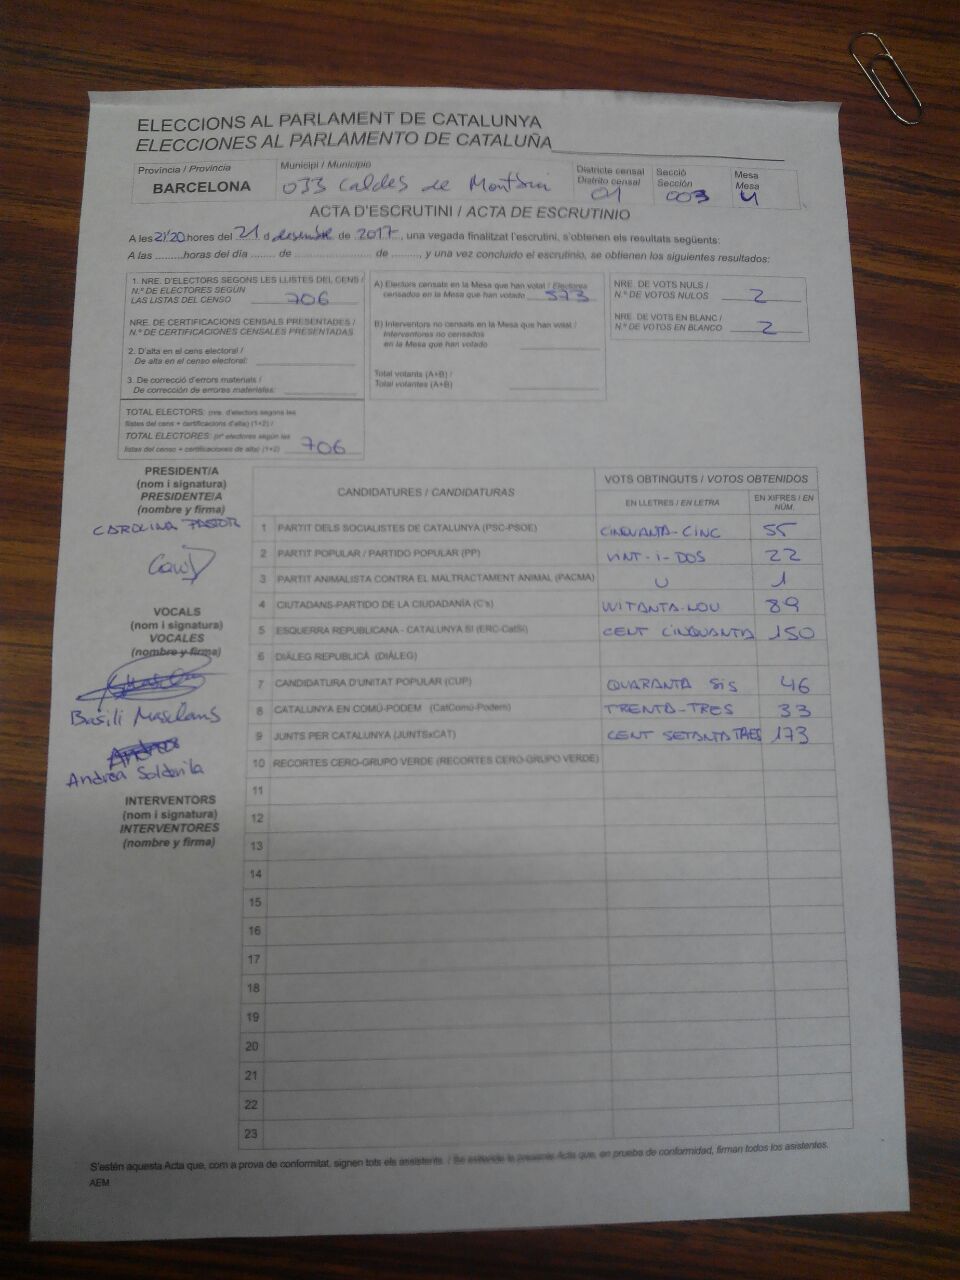 ELECCIONS AL PARLAMENT DE CATALUNYA
ELECCIONES AL PARLAMENTO DE CATALUÑA
Provincia / Provincia
BARCELONA
Municipi / Municipio
033 Caldes de Montbui
Districte censal
Distrito censal
01
Secció
Sección
003
Mesa
Mesa
U
ACTA D'ESCRUTINI / ACTA DE ESCRUTINIO
A les 21'20 hores del 21 d desembre de 2017, una vegada finalitzat l'escrutini, s'obtenen els resultats següents:
A las .........horas del día ........ de ........................ de ........, y una vez concluido el escrutinio, se obtienen los siguientes resultados:
1. NRE. D'ELECTORS SEGONS LES LLISTES DEL CENS /
N.º DE ELECTORES SEGÚN
LAS LISTAS DEL CENSO 706
NRE. DE CERTIFICACIONS CENSALS PRESENTADES /
N.º DE CERTIFICACIONES CENSALES PRESENTADAS
2. D'alta en el cens electoral /
De alta en el censo electoral:
3. De correcció d'errors materials /
De corrección de errores materiales:
TOTAL ELECTORS: (nre. d'electors segons les
llistes del cens + certificacions d'alta) (1+2) /
TOTAL ELECTORES: (nº electores según las
listas del censo + certificaciones de alta) (1+2) 706
A) Electors censats en la Mesa que han votat / Electores
censados en la Mesa que han votado 573
B) Interventors no censats en la Mesa que han votat /
Interventores no censados
en la Mesa que han votado
Total votants (A+B) /
Total votantes (A+B)
NRE. DE VOTS NULS /
N.º DE VOTOS NULOS 2
NRE. DE VOTS EN BLANC /
N.º DE VOTOS EN BLANCO 2
PRESIDENT/A
(nom i signatura)
PRESIDENTE/A
(nombre y firma)
CAROLINA PASTOR
VOCALS
(nom i signatura)
VOCALES
(nombre y firma)
Basili Masclans
Andrea Soldevila
INTERVENTORS
(nom i signatura)
INTERVENTORES
(nombre y firma)
CANDIDATURES / CANDIDATURAS
VOTS OBTINGUTS / VOTOS OBTENIDOS
EN LLETRES / EN LETRA
EN XIFRES / EN NÚM.
1 PARTIT DELS SOCIALISTES DE CATALUNYA (PSC-PSOE) CINQUANTA-CINC 55
2 PARTIT POPULAR / PARTIDO POPULAR (PP) VINT-I-DOS 22
3 PARTIT ANIMALISTA CONTRA EL MALTRACTAMENT ANIMAL (PACMA) U 1
4 CIUTADANS-PARTIDO DE LA CIUDADANÍA (C's) VUITANTA-NOU 89
5 ESQUERRA REPUBLICANA - CATALUNYA SÍ (ERC-CatSí) CENT CINQUANTA 150
6 DIÀLEG REPUBLICÀ (DIÀLEG)
7 CANDIDATURA D'UNITAT POPULAR (CUP) QUARANTA SIS 46
8 CATALUNYA EN COMÚ-PODEM (CatComú-Podem) TRENTA-TRES 33
9 JUNTS PER CATALUNYA (JUNTSxCAT) CENT SETANTA TRES 173
10 RECORTES CERO-GRUPO VERDE (RECORTES CERO-GRUPO VERDE)
11
12
13
14
15
16
17
18
19
20
21
22
23
S'estén aquesta Acta que, com a prova de conformitat, signen tots els assistents. / Se extiende la presente Acta que, en prueba de conformidad, firman todos los asistentes.
AEM